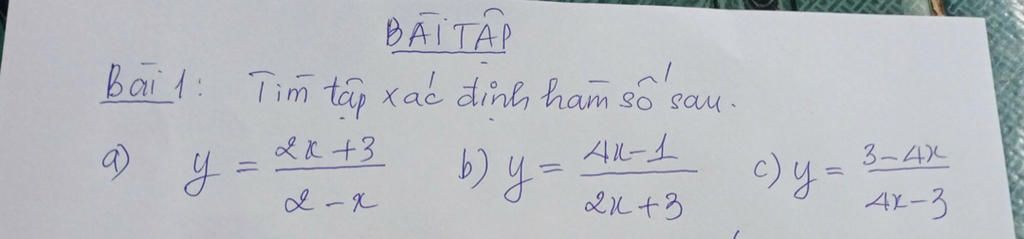 BÀI TẬP
Bài 1: Tìm tập xác định hàm số sau.
a) y = (2x + 3)/(2 - x) b) y = (4x - 1)/(2x + 3) c) y = (3 - 4x)/(4x - 3)